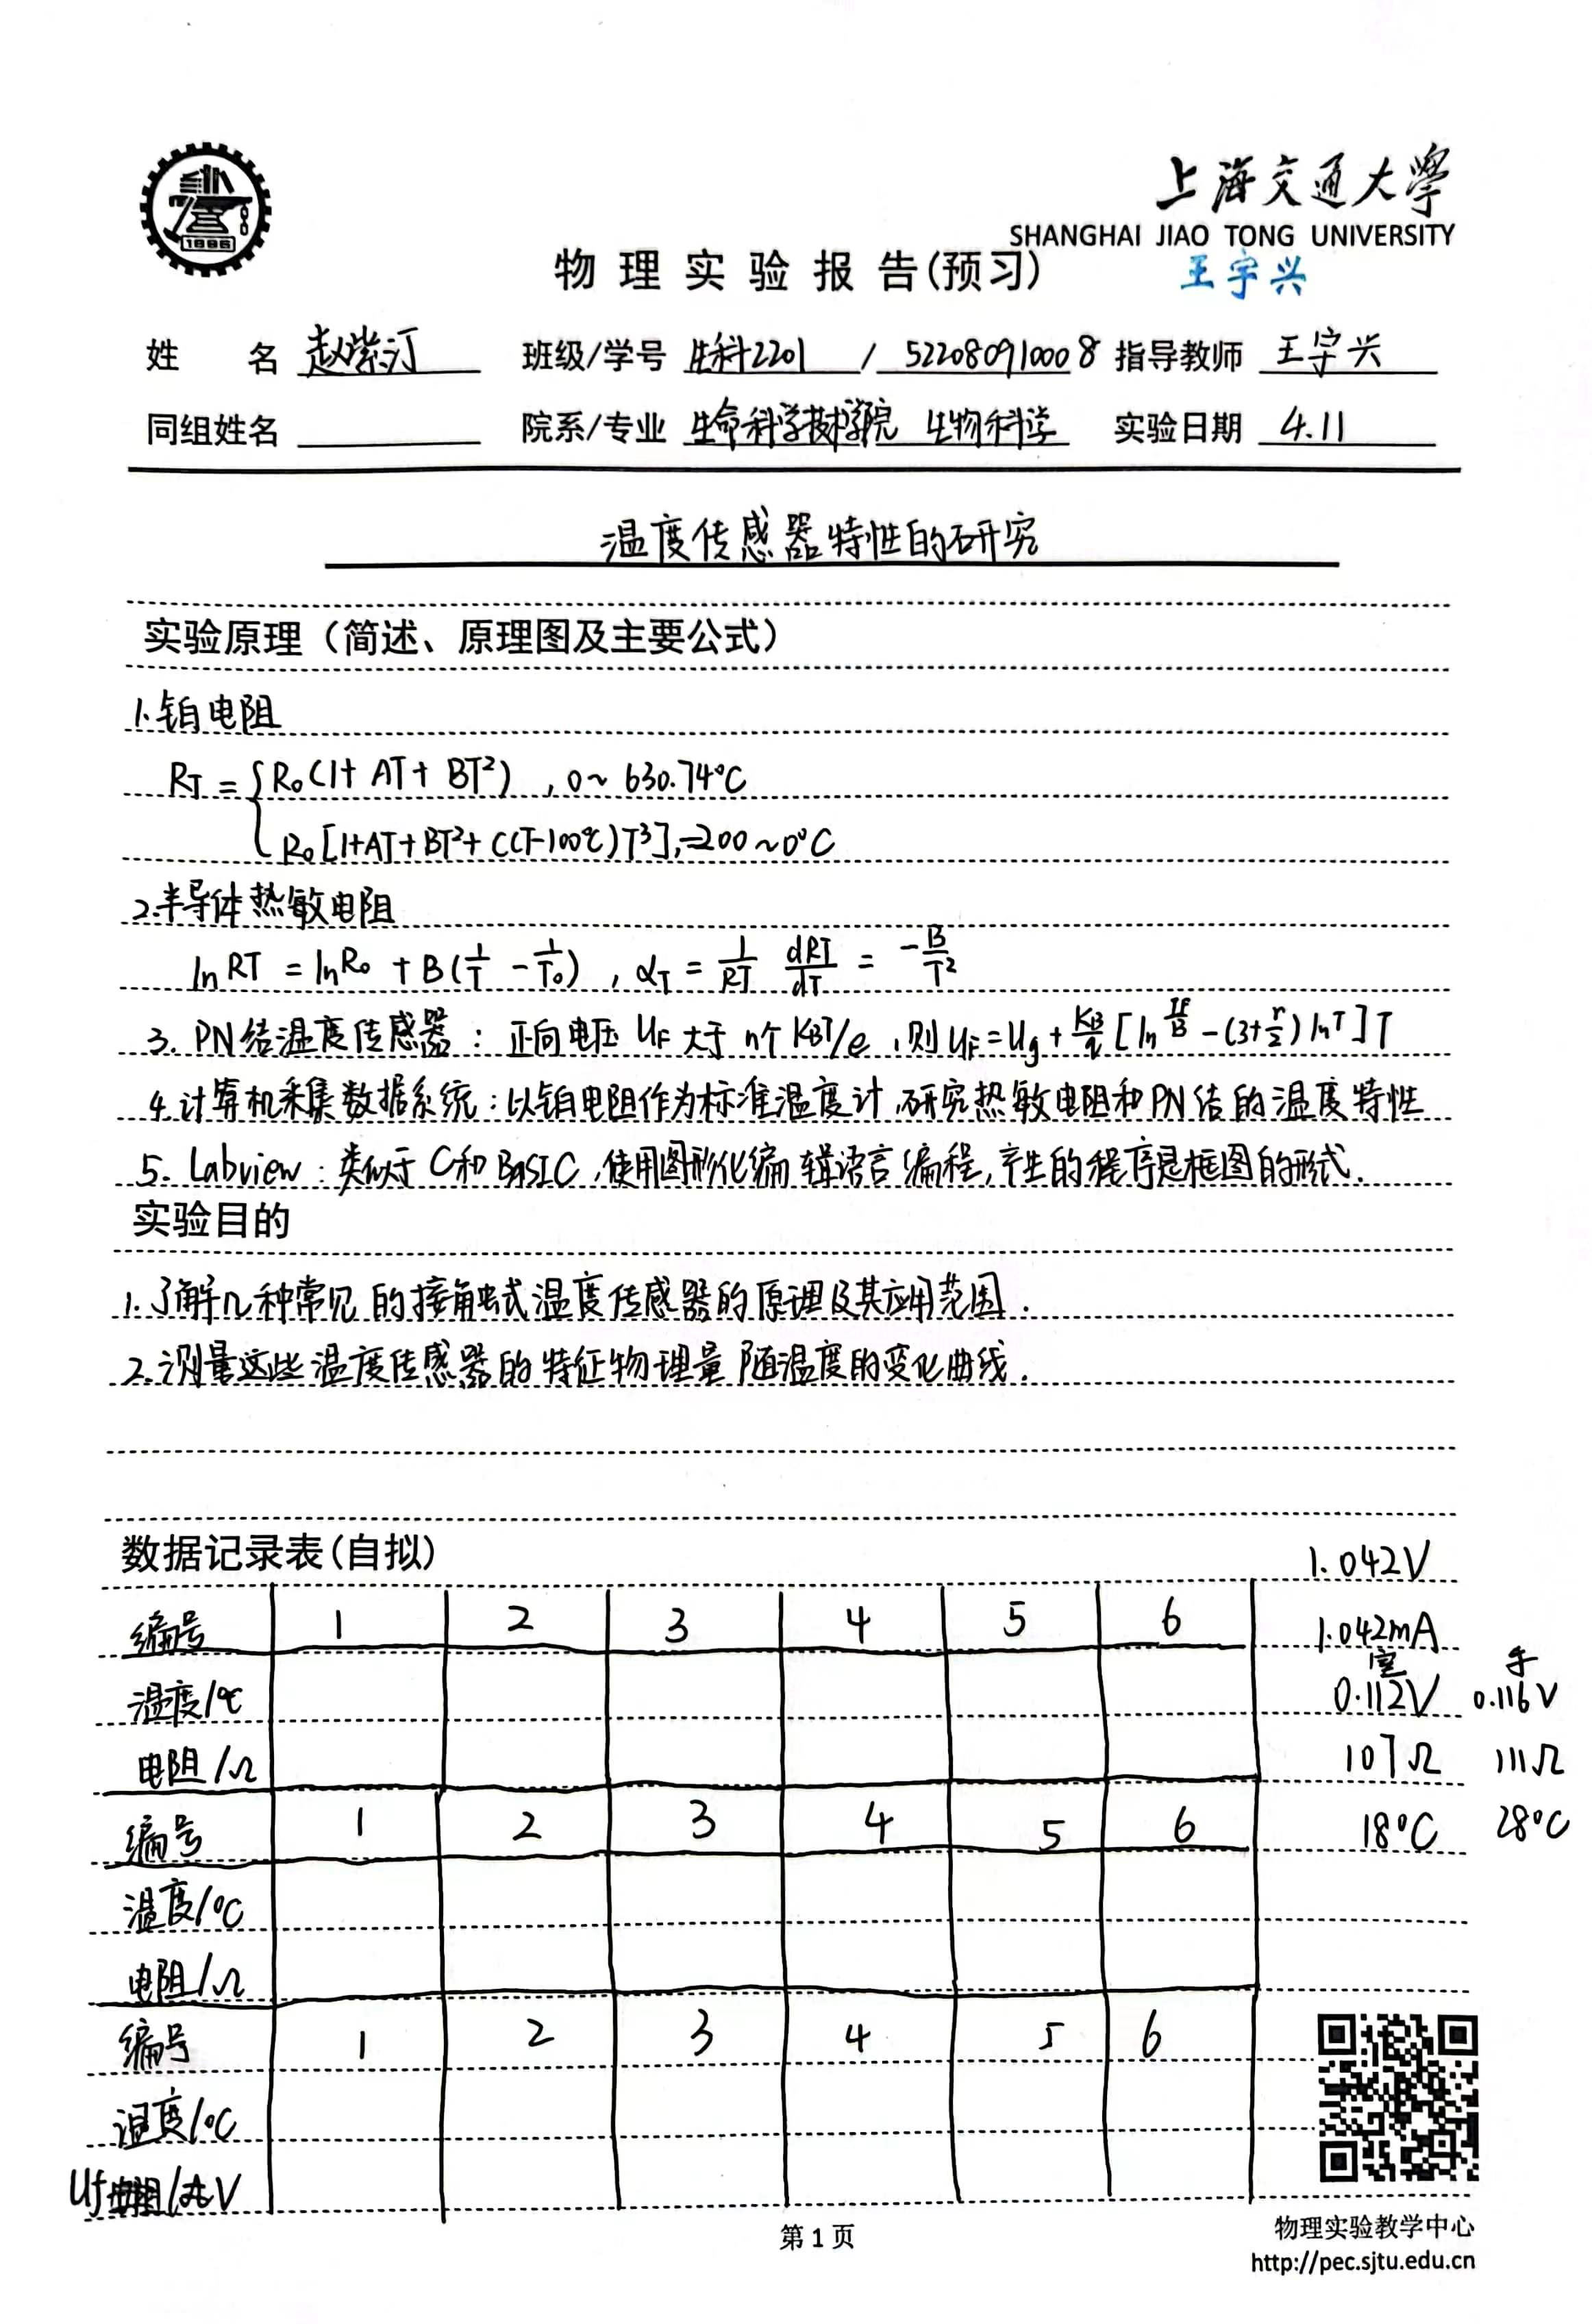 1896
上海交通大學
SHANGHAI JIAO TONG UNIVERSITY
物理实验报告(预习)
王宇兴
姓 名 赵紫汀 班级/学号 生科2201 / 522080910008 指导教师 王宇兴
同组姓名 院系/专业 生命科学技术学院 生物科学 实验日期 4.11
温度传感器特性的研究
实验原理（简述、原理图及主要公式）
1.铂电阻
RT = { R₀(1+ AT+ BT²) , 0~ 630.74℃
R₀[1+AT+BT²+ C(T-100℃)T³],-200~0℃
2.半导体热敏电阻
ln RT = ln R₀ + B(1/T - 1/T₀) , αT = 1/RT dRT/dT = -B/T²
3. PN结温度传感器: 正向电压 UF 大于 n个 KBT/e ,则 UF=Ug+ KB/q [ln IF/B -(3+r/2) lnT]T
4.计算机采集数据系统:以铂电阻作为标准温度计,研究热敏电阻和PN结的温度特性
5. Labview: 类似于C和BASIC,使用图形化编辑语言编程,产生的程序是框图的形式.
实验目的
1.了解几种常见的接触式温度传感器的原理及其应用范围.
2.测量这些温度传感器的特征物理量随温度的变化曲线.
数据记录表(自拟)
1.042V
编号 1 2 3 4 5 6 1.042mA
室 手
温度/℃ 0.112V 0.116V
电阻/Ω 107Ω 111Ω
编号 1 2 3 4 5 6 18℃ 28℃
温度/℃
电阻/Ω
编号 1 2 3 4 5 6
温度/℃
Uf /V
第1页
物理实验教学中心
http://pec.sjtu.edu.cn